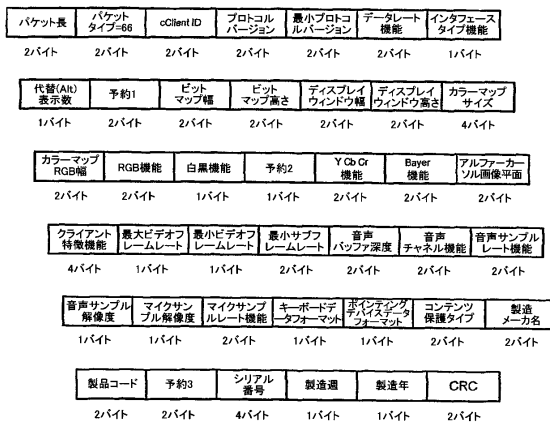 パケット長
パケット
タイプ=66
cClient ID
プロトコル
バージョン
最小プロトコ
ルバージョン
データレート
機能
インタフェース
タイプ機能
2バイト 2バイト 2バイト 2バイト 2バイト 2バイト 1バイト
代替(Alt)
表示数
予約1
ビット
マップ幅
ビット
マップ高さ
ディスプレイ
ウィンドウ幅
ディスプレイ
ウィンドウ高さ
カラーマップ
サイズ
1バイト 2バイト 2バイト 2バイト 2バイト 2バイト 4バイト
カラーマップ
RGB幅
RGB機能
白黒機能
予約2
Y Cb Cr
機能
Bayer
機能
アルファーカー
ソル画像平面
2バイト 2バイト 1バイト 1バイト 2バイト 2バイト 2バイト
クライアント
特徴機能
最大ビデオフ
レームレート
最小ビデオフ
レームレート
最小サブフ
レームレート
音声
バッファ深度
音声
チャネル機能
音声サンプル
レート機能
4バイト 1バイト 1バイト 2バイト 2バイト 2バイト 2バイト
音声サンプル
解像度
マイクサン
プル解像度
マイクサンプ
ルレート機能
キーボードデ
ータフォーマット
ポインティング
デバイスデータ
フォーマット
コンテンツ
保護タイプ
製造
メーカ名
1バイト 1バイト 2バイト 1バイト 1バイト 2バイト 2バイト
製品コード
予約3
シリアル
番号
製造週
製造年
CRC
2バイト 2バイト 4バイト 1バイト 1バイト 2バイト